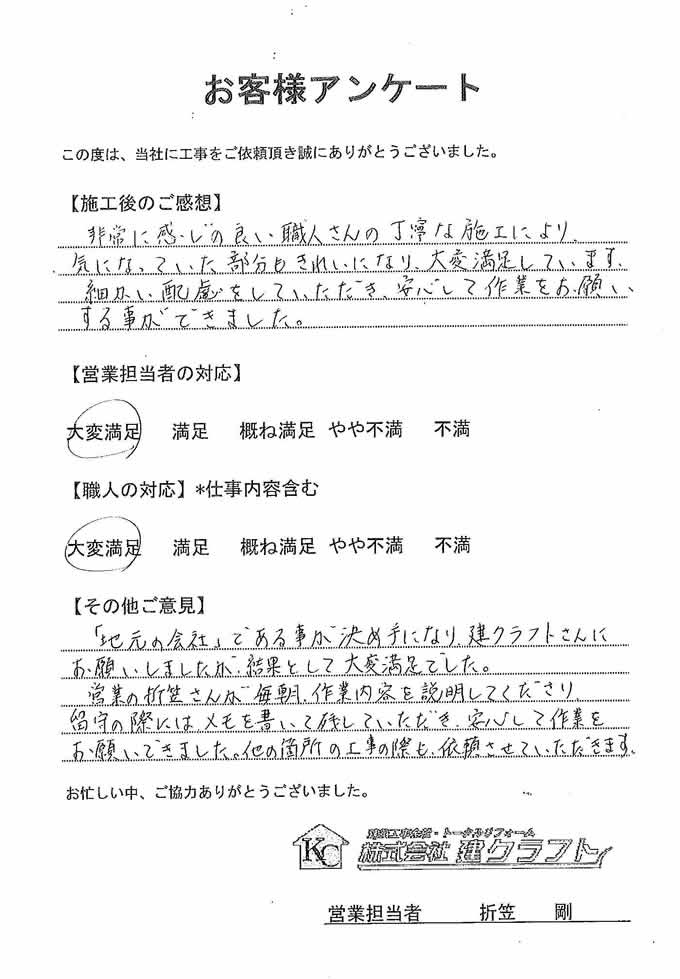 お客様アンケート
この度は、当社に工事をご依頼頂き誠にありがとうございました。
【施工後のご感想】
非常に感じの良い職人さんの丁寧な施工により、
気になっていた部分もきれいになり、大変満足しています。
細かい配慮をしていただき、安心して作業をお願い
する事ができました。
【営業担当者の対応】
大変満足 満足 概ね満足 やや不満 不満
【職人の対応】*仕事内容含む
大変満足 満足 概ね満足 やや不満 不満
【その他ご意見】
「地元の会社」である事が決め手になり、建クラフトさんに
お願いしましたが、結果として大変満足でした。
営業の折笠さんが毎朝、作業内容を説明してくださり、
留守の際にはメモを書いて残していただき、安心して作業を
お願いできました。他の箇所の工事の際も、依頼させていただきます。
お忙しい中、ご協力ありがとうございました。
KC
建築工事全般・トータルリフォーム
株式会社 建クラフト
営業担当者 折笠 剛